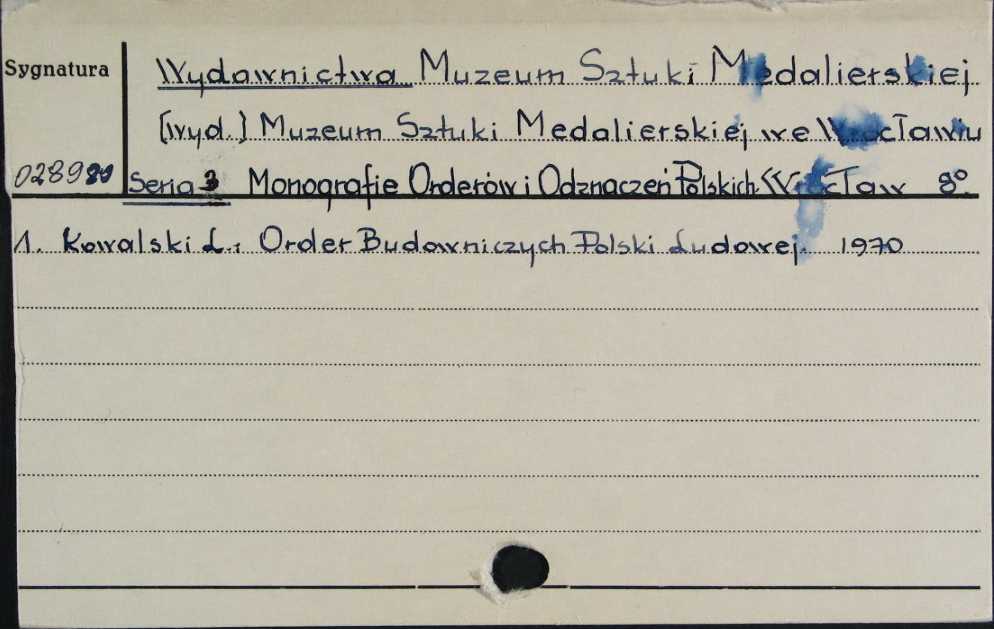 Sygnatura
Wydawnictwa Muzeum Sztuki Medalierskiej
[wyd.] Muzeum Sztuki Medalierskiej we Wrocławiu
028980 Seria 3 Monografie Orderów i Odznaczeń Polskich. Wrocław 8°.
1. Kowalski L.: Order Budowniczych Polski Ludowej. 1970